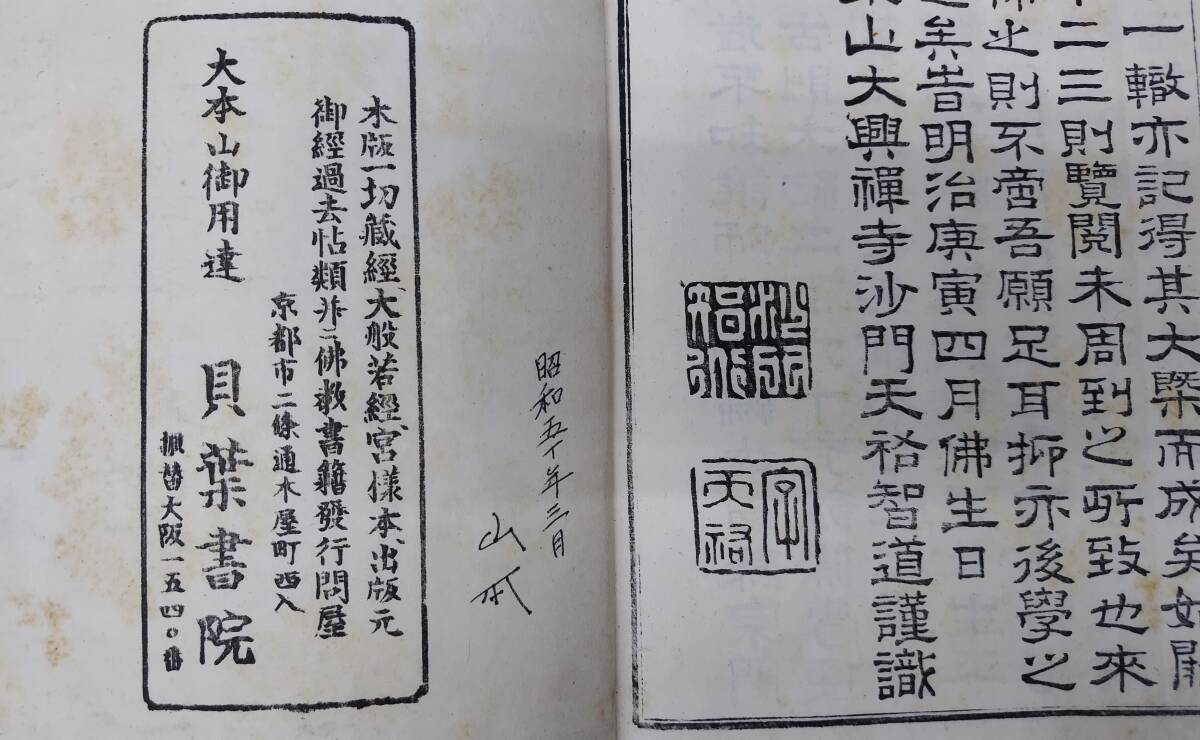 一轍亦記得其大槩而成矣如開
二三則覽閱未周到之所致也來
之則不啻吾願足耳抑亦後學之
矣旹明治庚寅四月佛生日
山大興禪寺沙門天 智道謹識
昭和五十年三月
山本
木版一切藏經、大般若經、宮樣本、出版元
御經過去帖類并ニ佛敎書籍發行問屋
京都市二條通木屋町西入
大本山御用達 貝葉書院
振替大阪一五四〇番